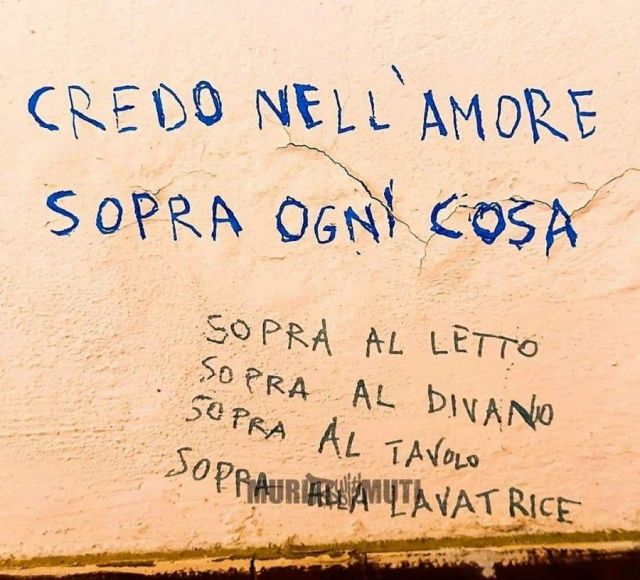 CREDO NELL'AMORE
SOPRA OGNI COSA
SOPRA AL LETTO
SOPRA AL DIVANO
SOPRA AL TAVOLO
SOPRA ALLA LAVATRICE